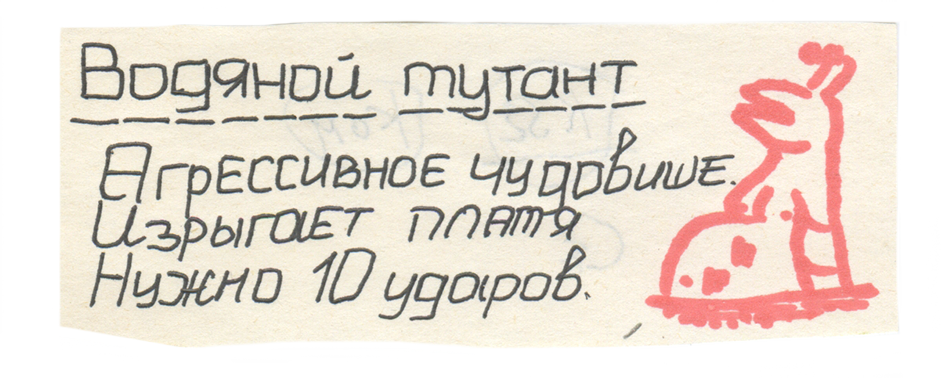 Водяной мутант
Агрессивное чудовише.
Изрыгает пламя
Нужно 10 ударов.